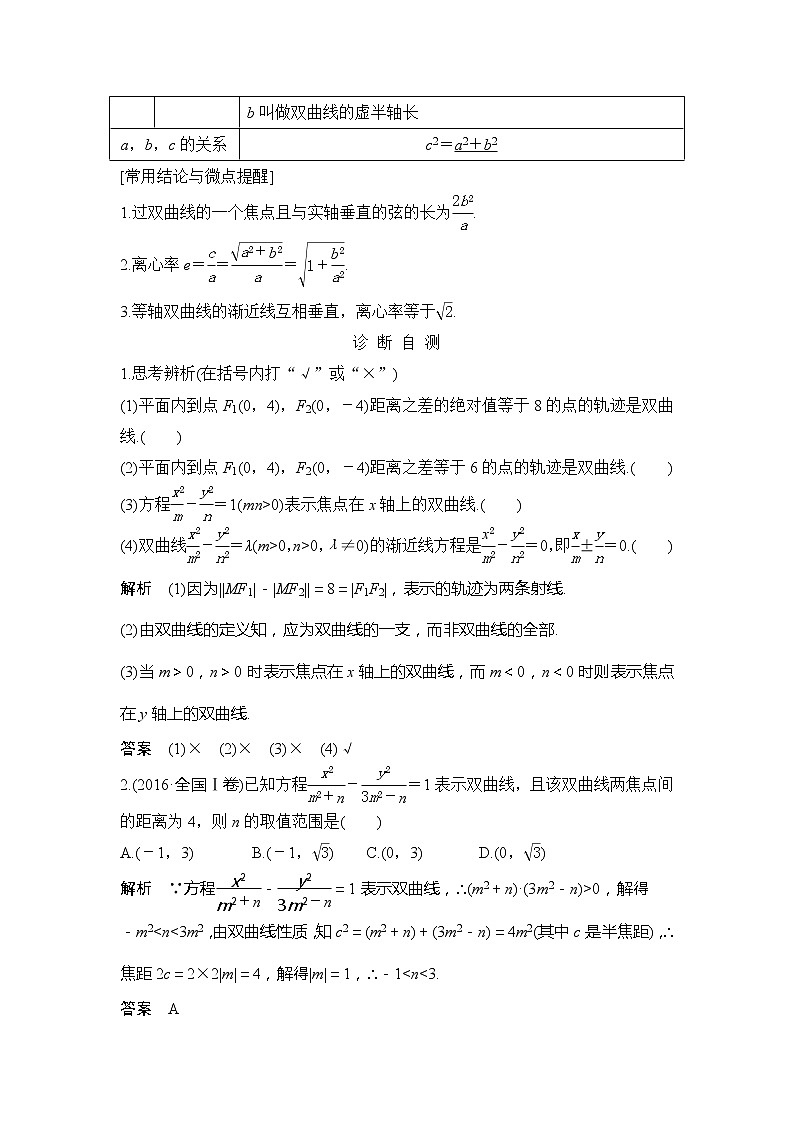 b叫做双曲线的虚半轴长
a，b，c的关系 c²＝a²＋b²
[常用结论与微点提醒]
1.过双曲线的一个焦点且与实轴垂直的弦的长为2b²/a.
2.离心率e＝c/a＝√(a²＋b²)/a＝√(1＋b²/a²).
3.等轴双曲线的渐近线互相垂直，离心率等于√2.
诊 断 自 测
1.思考辨析(在括号内打“√”或“×”)
(1)平面内到点F₁(0，4)，F₂(0，－4)距离之差的绝对值等于8的点的轨迹是双曲
线.(　　)
(2)平面内到点F₁(0，4)，F₂(0，－4)距离之差等于6的点的轨迹是双曲线.(　　)
(3)方程x²/m－y²/n＝1(mn>0)表示焦点在x轴上的双曲线.(　　)
(4)双曲线x²/m²－y²/n²＝λ(m>0,n>0，λ≠0)的渐近线方程是x²/m²－y²/n²＝0,即x/m±y/n＝0.(　　)
解析　(1)因为||MF₁|－|MF₂||＝8＝|F₁F₂|，表示的轨迹为两条射线.
(2)由双曲线的定义知，应为双曲线的一支，而非双曲线的全部.
(3)当m＞0，n＞0时表示焦点在x轴上的双曲线，而m＜0，n＜0时则表示焦点
在y轴上的双曲线.
答案　(1)×　(2)×　(3)×　(4)√
2.(2016·全国Ⅰ卷)已知方程x²/(m²＋n)－y²/(3m²－n)＝1表示双曲线，且该双曲线两焦点间
的距离为4，则n的取值范围是(　　)
A.(－1，3)　B.(－1，√3)　C.(0，3)　D.(0，√3)
解析　∵方程x²/(m²＋n)－y²/(3m²－n)＝1表示双曲线，∴(m²＋n)·(3m²－n)>0，解得
－m²<n<3m²，由双曲线性质，知c²＝(m²＋n)＋(3m²－n)＝4m²(其中c是半焦距)，∴
焦距2c＝2×2|m|＝4，解得|m|＝1，∴－1<n<3.
答案　A